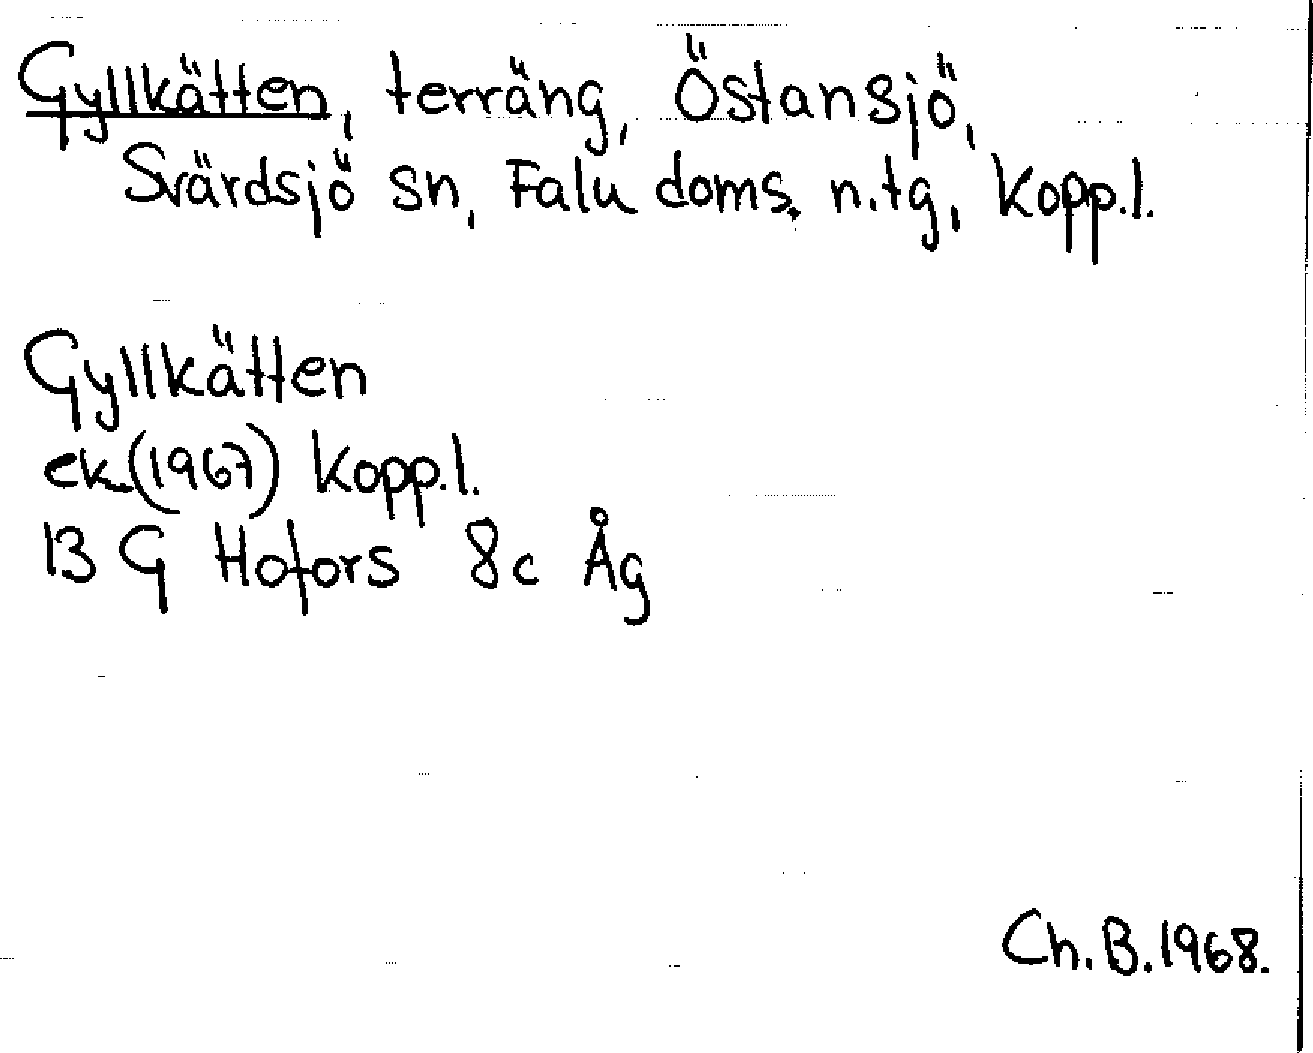 Gyllkätten, terräng, Östansjö,
Svärdsjö sn, Falu doms. n.tg, Kopp.l.
Gyllkätten
ek.(1967) Kopp.l.
13 G Hofors 8c Åg
Ch.B.1968.